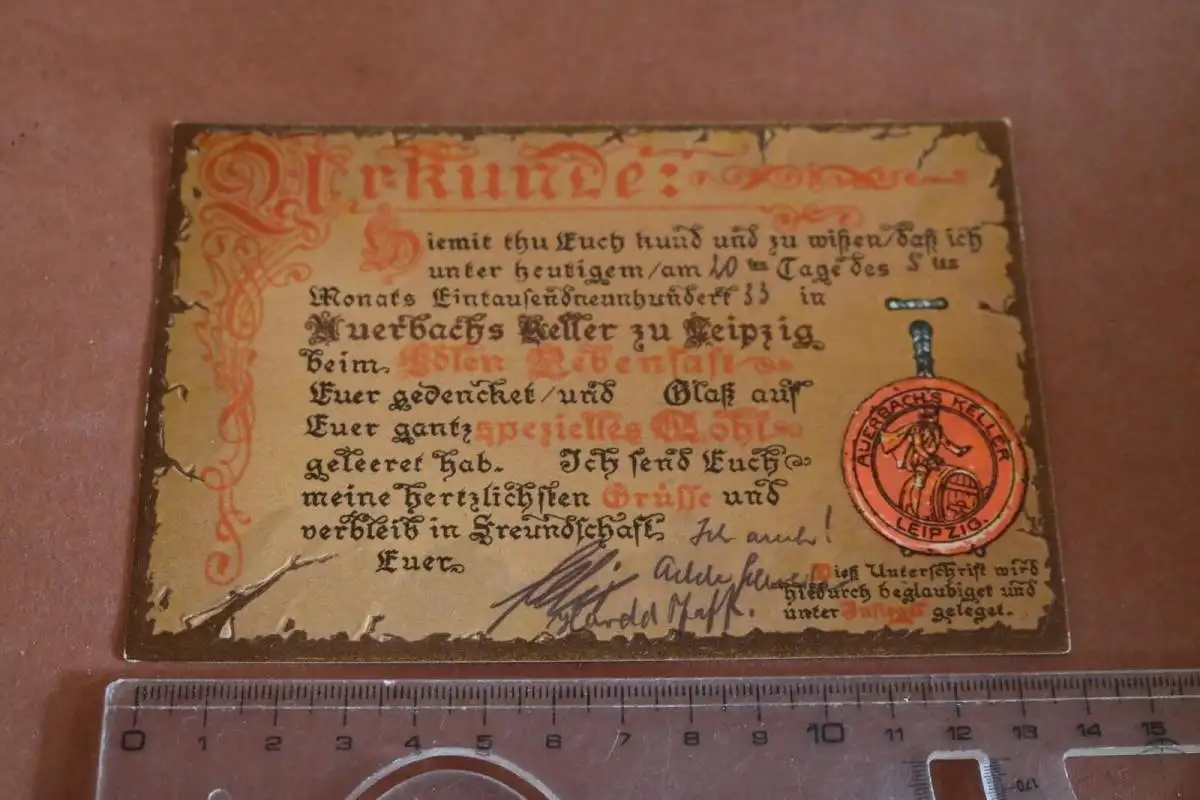 Urkunde:
Hiemit thu Euch kund und zu wißen/daß ich
unter heutigem/am 20 ten Tage des
Monats Eintausendneunhundert 33 in
Auerbachs Keller zu Leipzig
beim Edlen Rebensaft
Euer gedencket/und Glaß auf
Euer gantz spezielles Wohl
geleeret hab. Ich send Euch
meine hertzlichsten Grüsse und
verbleib in Freundschaft
Ich auch!
Euer
Dieß Unterschrift wird
hiedurch beglaubiget und
unter geleget.
AUERBACH'S KELLER
LEIPZIG.
0 1 2 3 4 5 6 7 8 9 10 11 12 13 14 15
170